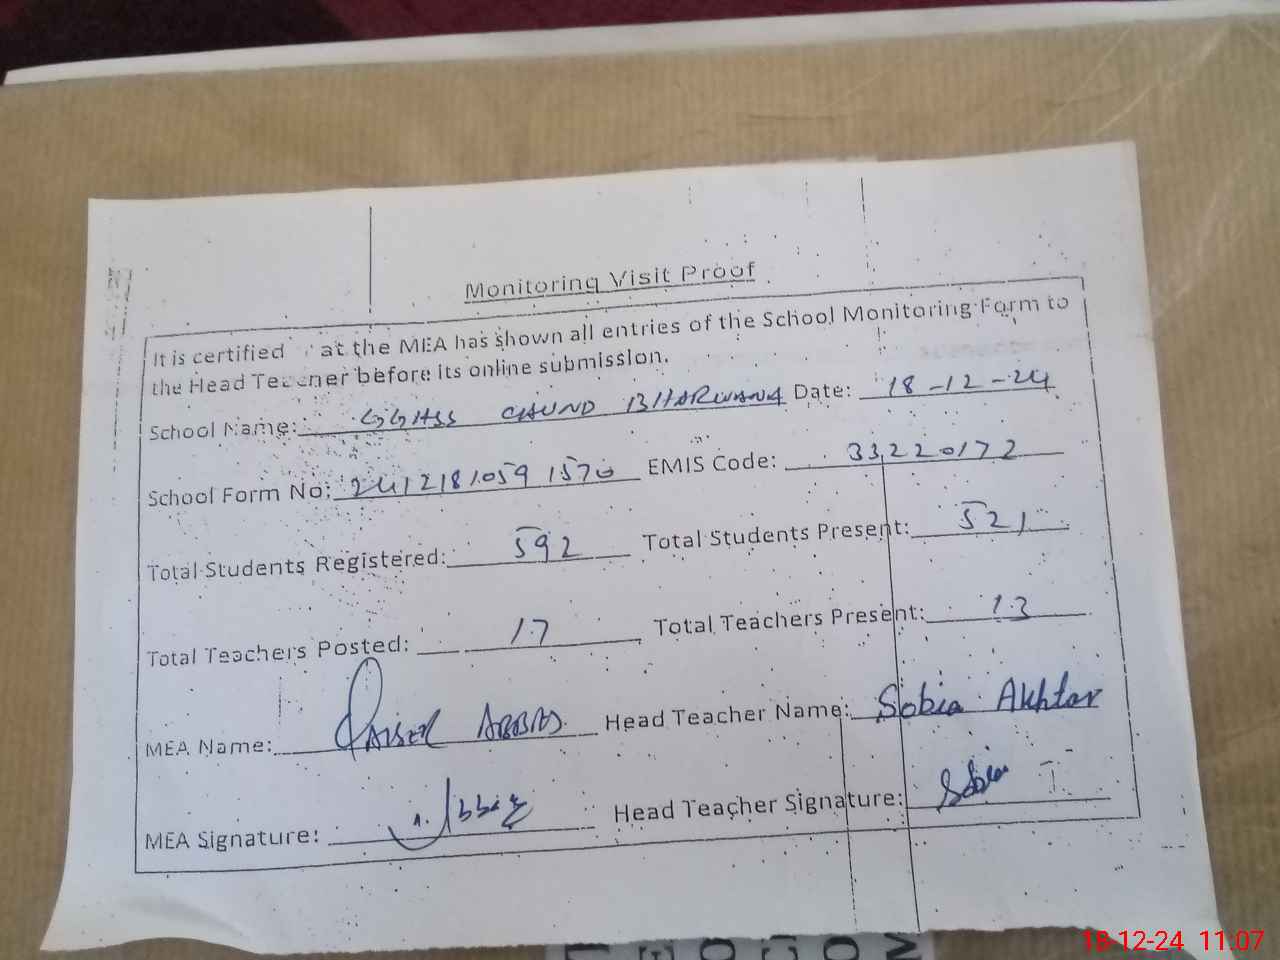 Monitoring Visit Proof
It is certified at the MEA has shown all entries of the School Monitoring Form to
the Head Teacher before its online submission.
School Name: GGHSS CHUND BHARWANA Date: 18-12-24
School Form No: 24121810591570 EMIS Code: 33220172
Total Students Registered: 592 Total Students Present: 521
Total Teachers Posted: 17 Total Teachers Present: 13
MEA Name: QAISER ABBAS Head Teacher Name: Sobia Akhtar
MEA Signature: Head Teacher Signature: Sobia
18-12-24 11.07